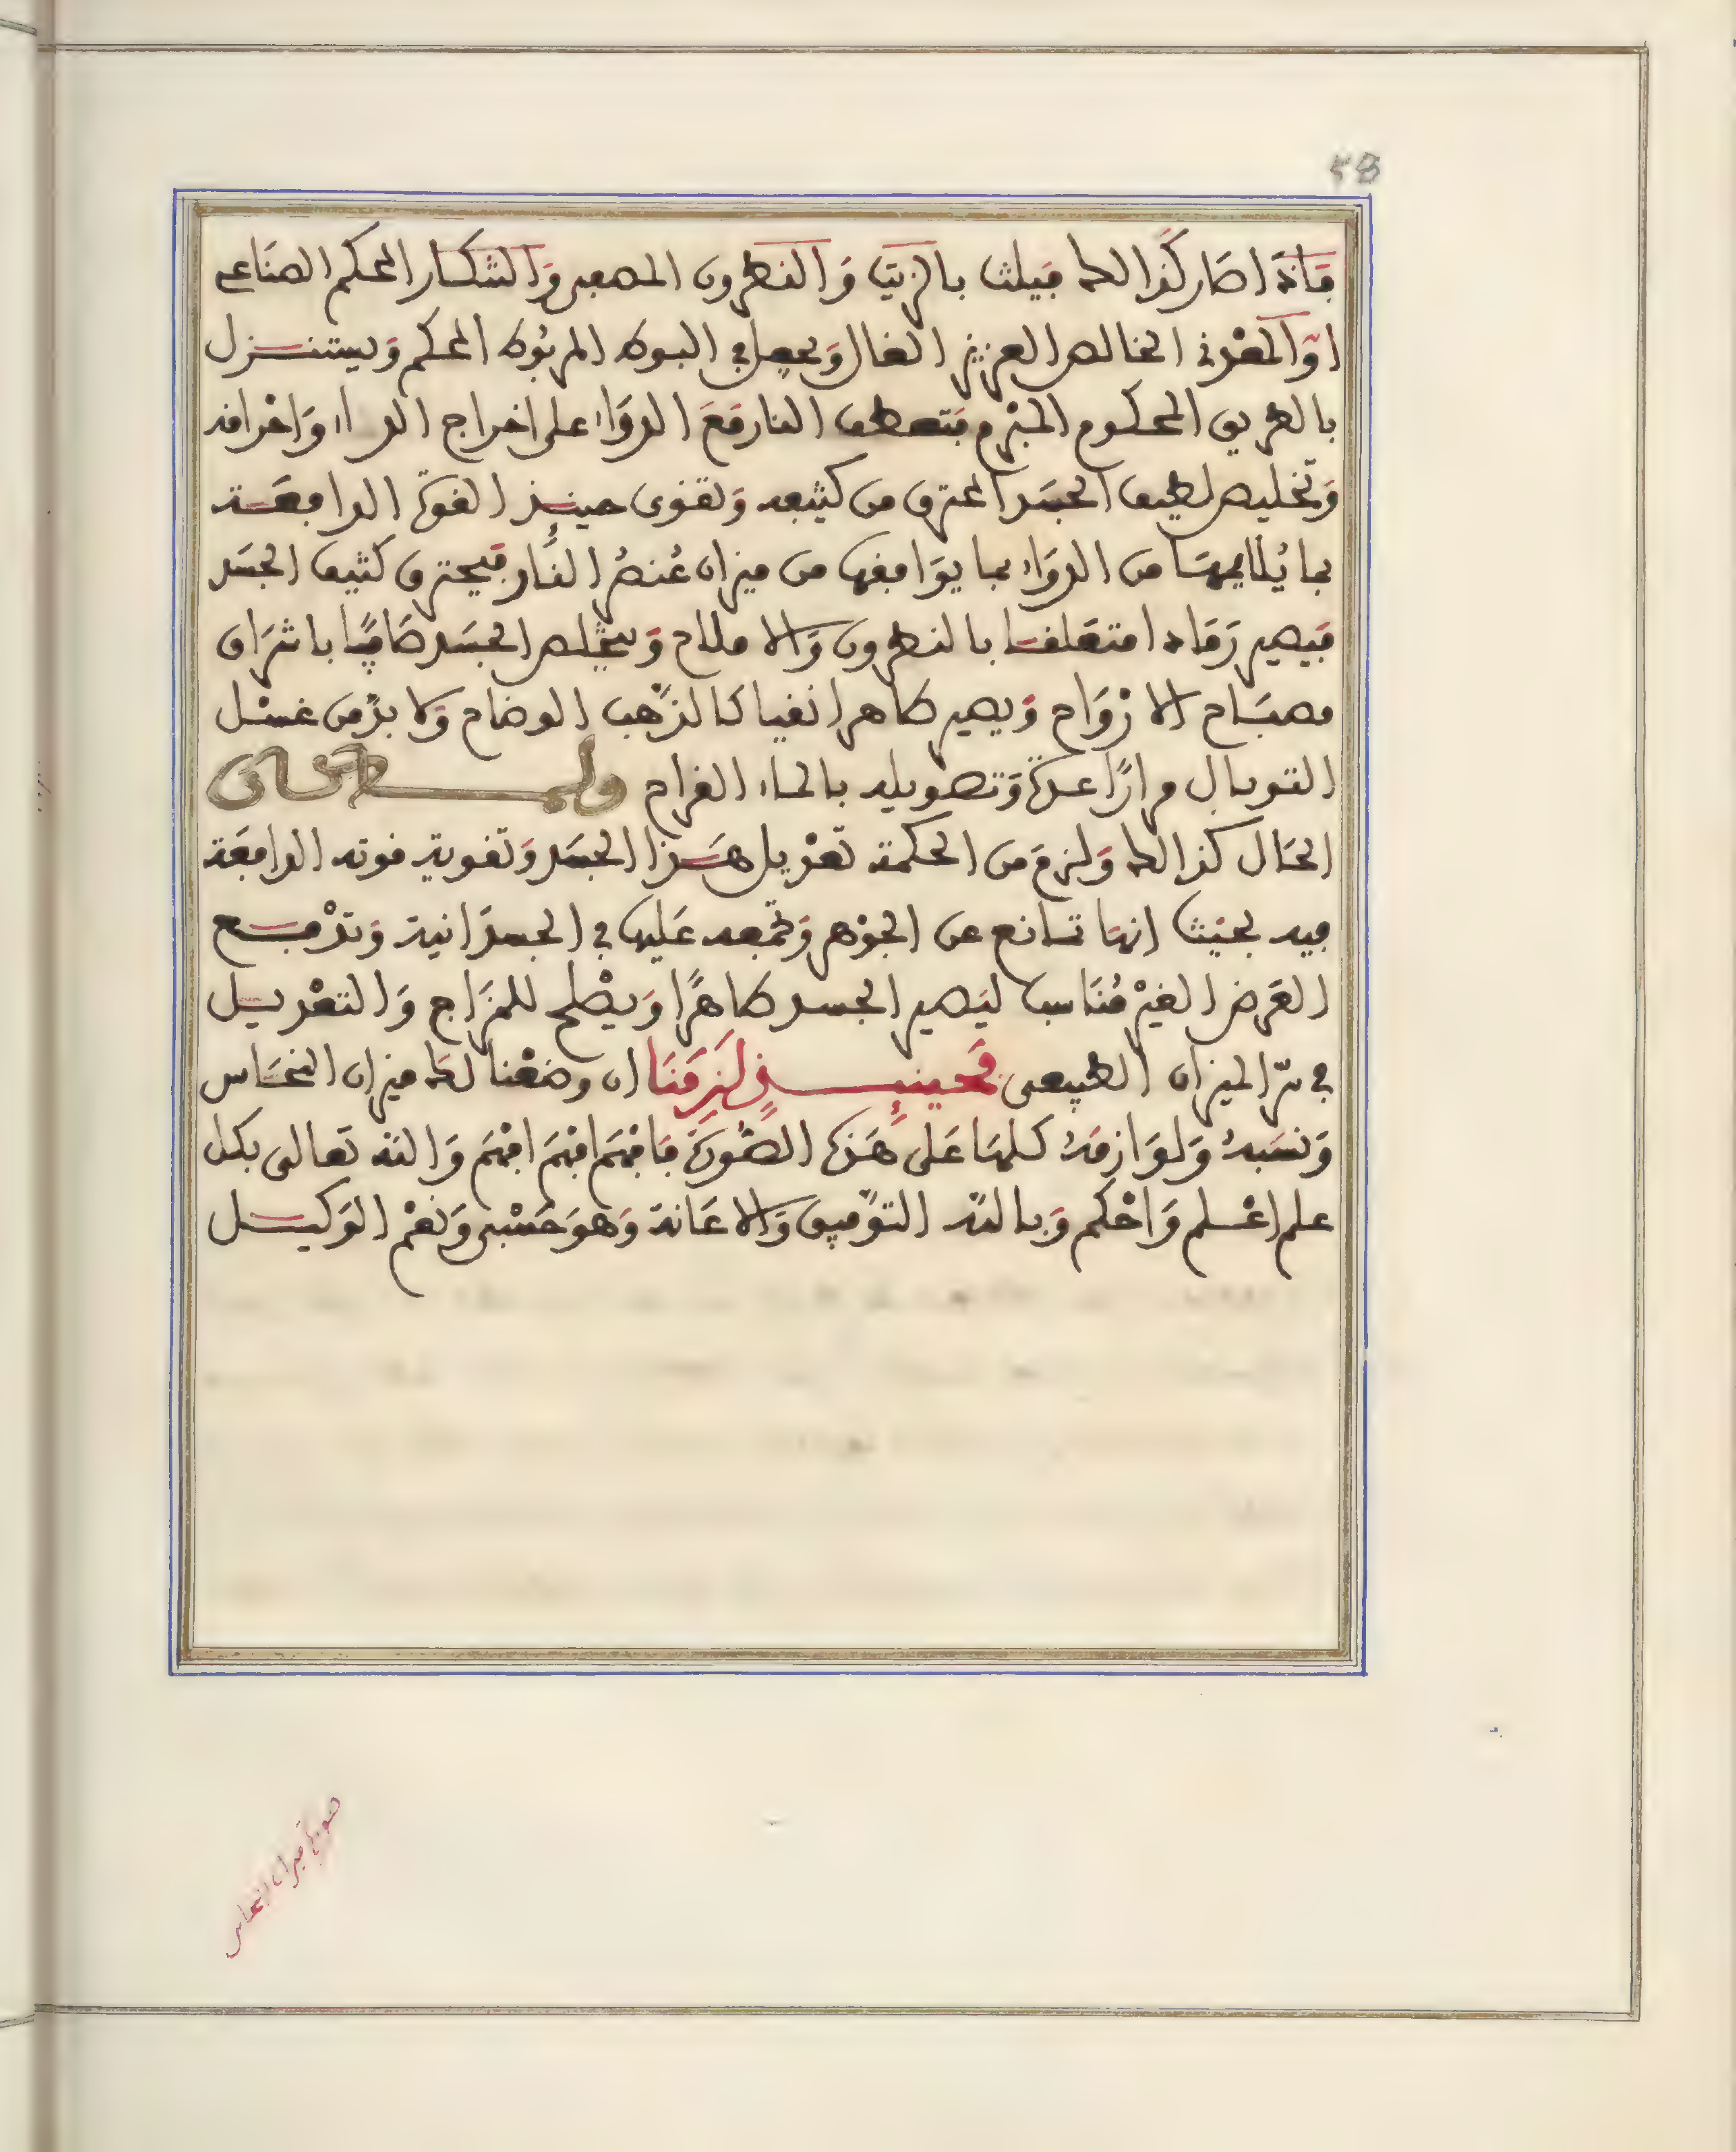 58
فاذا صار كذالك فيلث بالزيت والنطرون المصعد والتنكار المحكم الصناعي
او المعدني الخالص العزيز الغال ويجعل في البوط المربوط المحكم ويستنزل
بالطريق المحكوم المبرم فتعطف النار مع الدواء على اخراج الداء واحراقه
وتخليص لطيف الجسد المحترق من كثيفه وتقوى حينئذ القوة الدافعة
بما يلايمها من الدواء بما يوافقها من ميزان عنصر النار فيحترق كثيف الجسد
فيصير رمادا متعلقا بالنطرون والاملاح ويتخلص الجسد صافيا باشراق
مصباح الازواج ويصير طاهرا نقيا كالذهب الوضاح ولا بد من غسل
التوبال مرارا عدة وتصويله بالماء القراح ولما كان
الحال كذالك ولزم من الحكمة تعديل هذا الجسد وتقوية قوته الدافعة
فيه بحيث انها تمانع عن الجوهر وتجمعه عليها في الجسدانية وتدفع
العرض الغير مناسب ليصير الجسد طاهرا ويصلح للمزاج والتعديل
في سر الميزان الطبيعي فحينئذ لزمنا ان وضعنا لك ميزان النحاس
ونسبه ولوازمه كلها على هذه الصورة فافهم افهم افهم والله تعالى بكل
علم اعلم واحكم وبالله التوفيق والاعانة وهو حسبي ونعم الوكيل
صورة ميزان النحاس